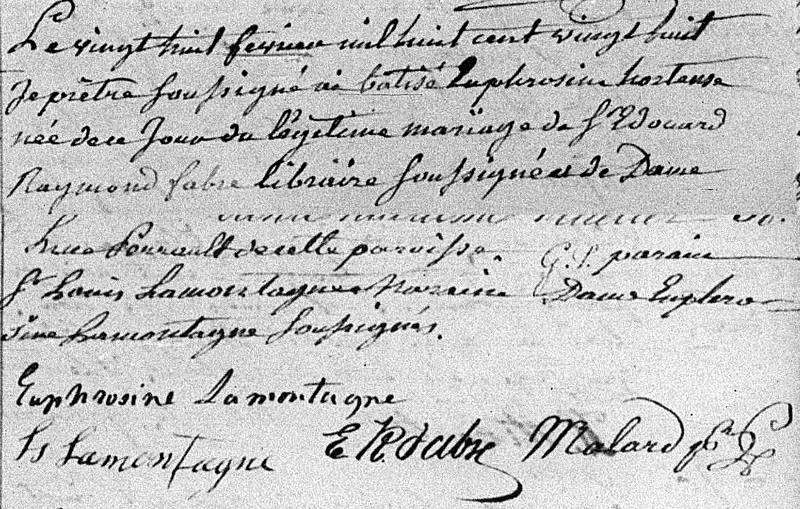 Le vingt huit fevrier mil huit cent vingt huit
Je prêtre soussigné ai batisé Euphrosine hortense
née de ce Jour du légitime mariage de Sr Edouard
Raymond fabre libraire soussigné et de Dame
Luce Perrault de cette paroisse. parain
Sr Louis Lamontagne Maraine Dame Euphro-
sine Lamontagne soussignés.
Euphrosine Lamontagne
Ls Lamontagne E R Fabre Malard ptre